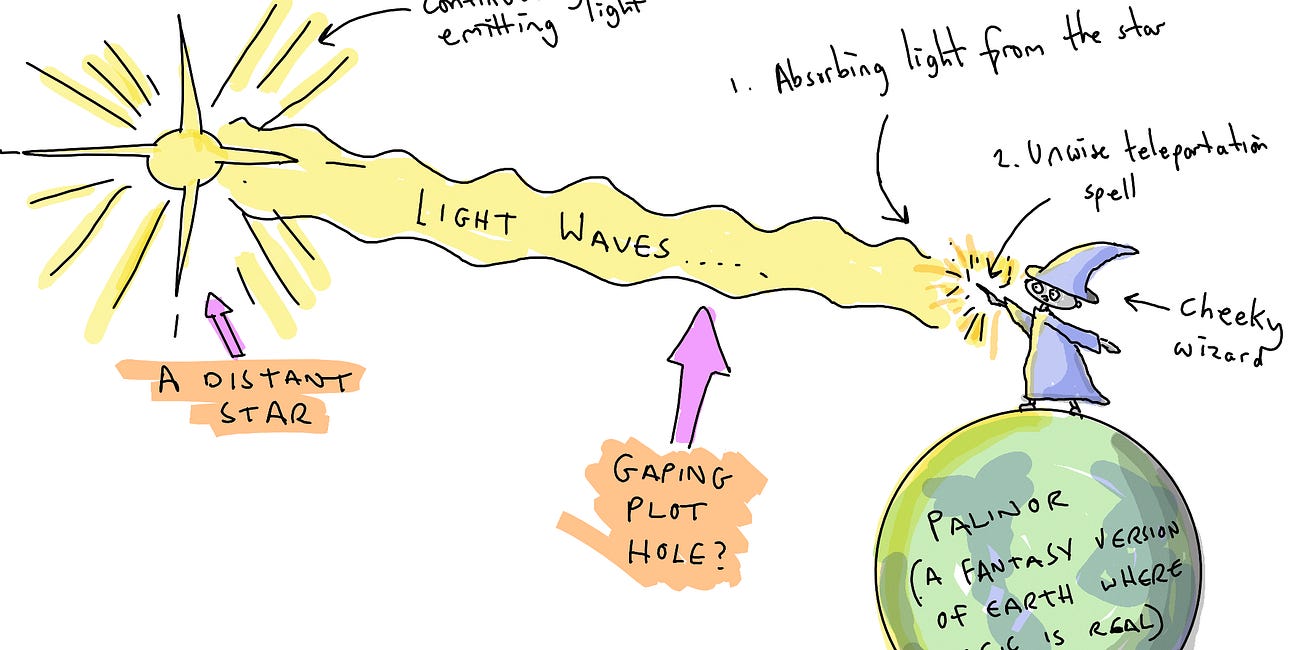 emitting light
1. Absorbing light from the star
2. Unwise teleportation
spell
LIGHT WAVES.....
Cheeky
wizard
A DISTANT
STAR
GAPING
PLOT
HOLE?
PALINOR
(A FANTASY VERSION
OF EARTH WHERE
IS REAL)